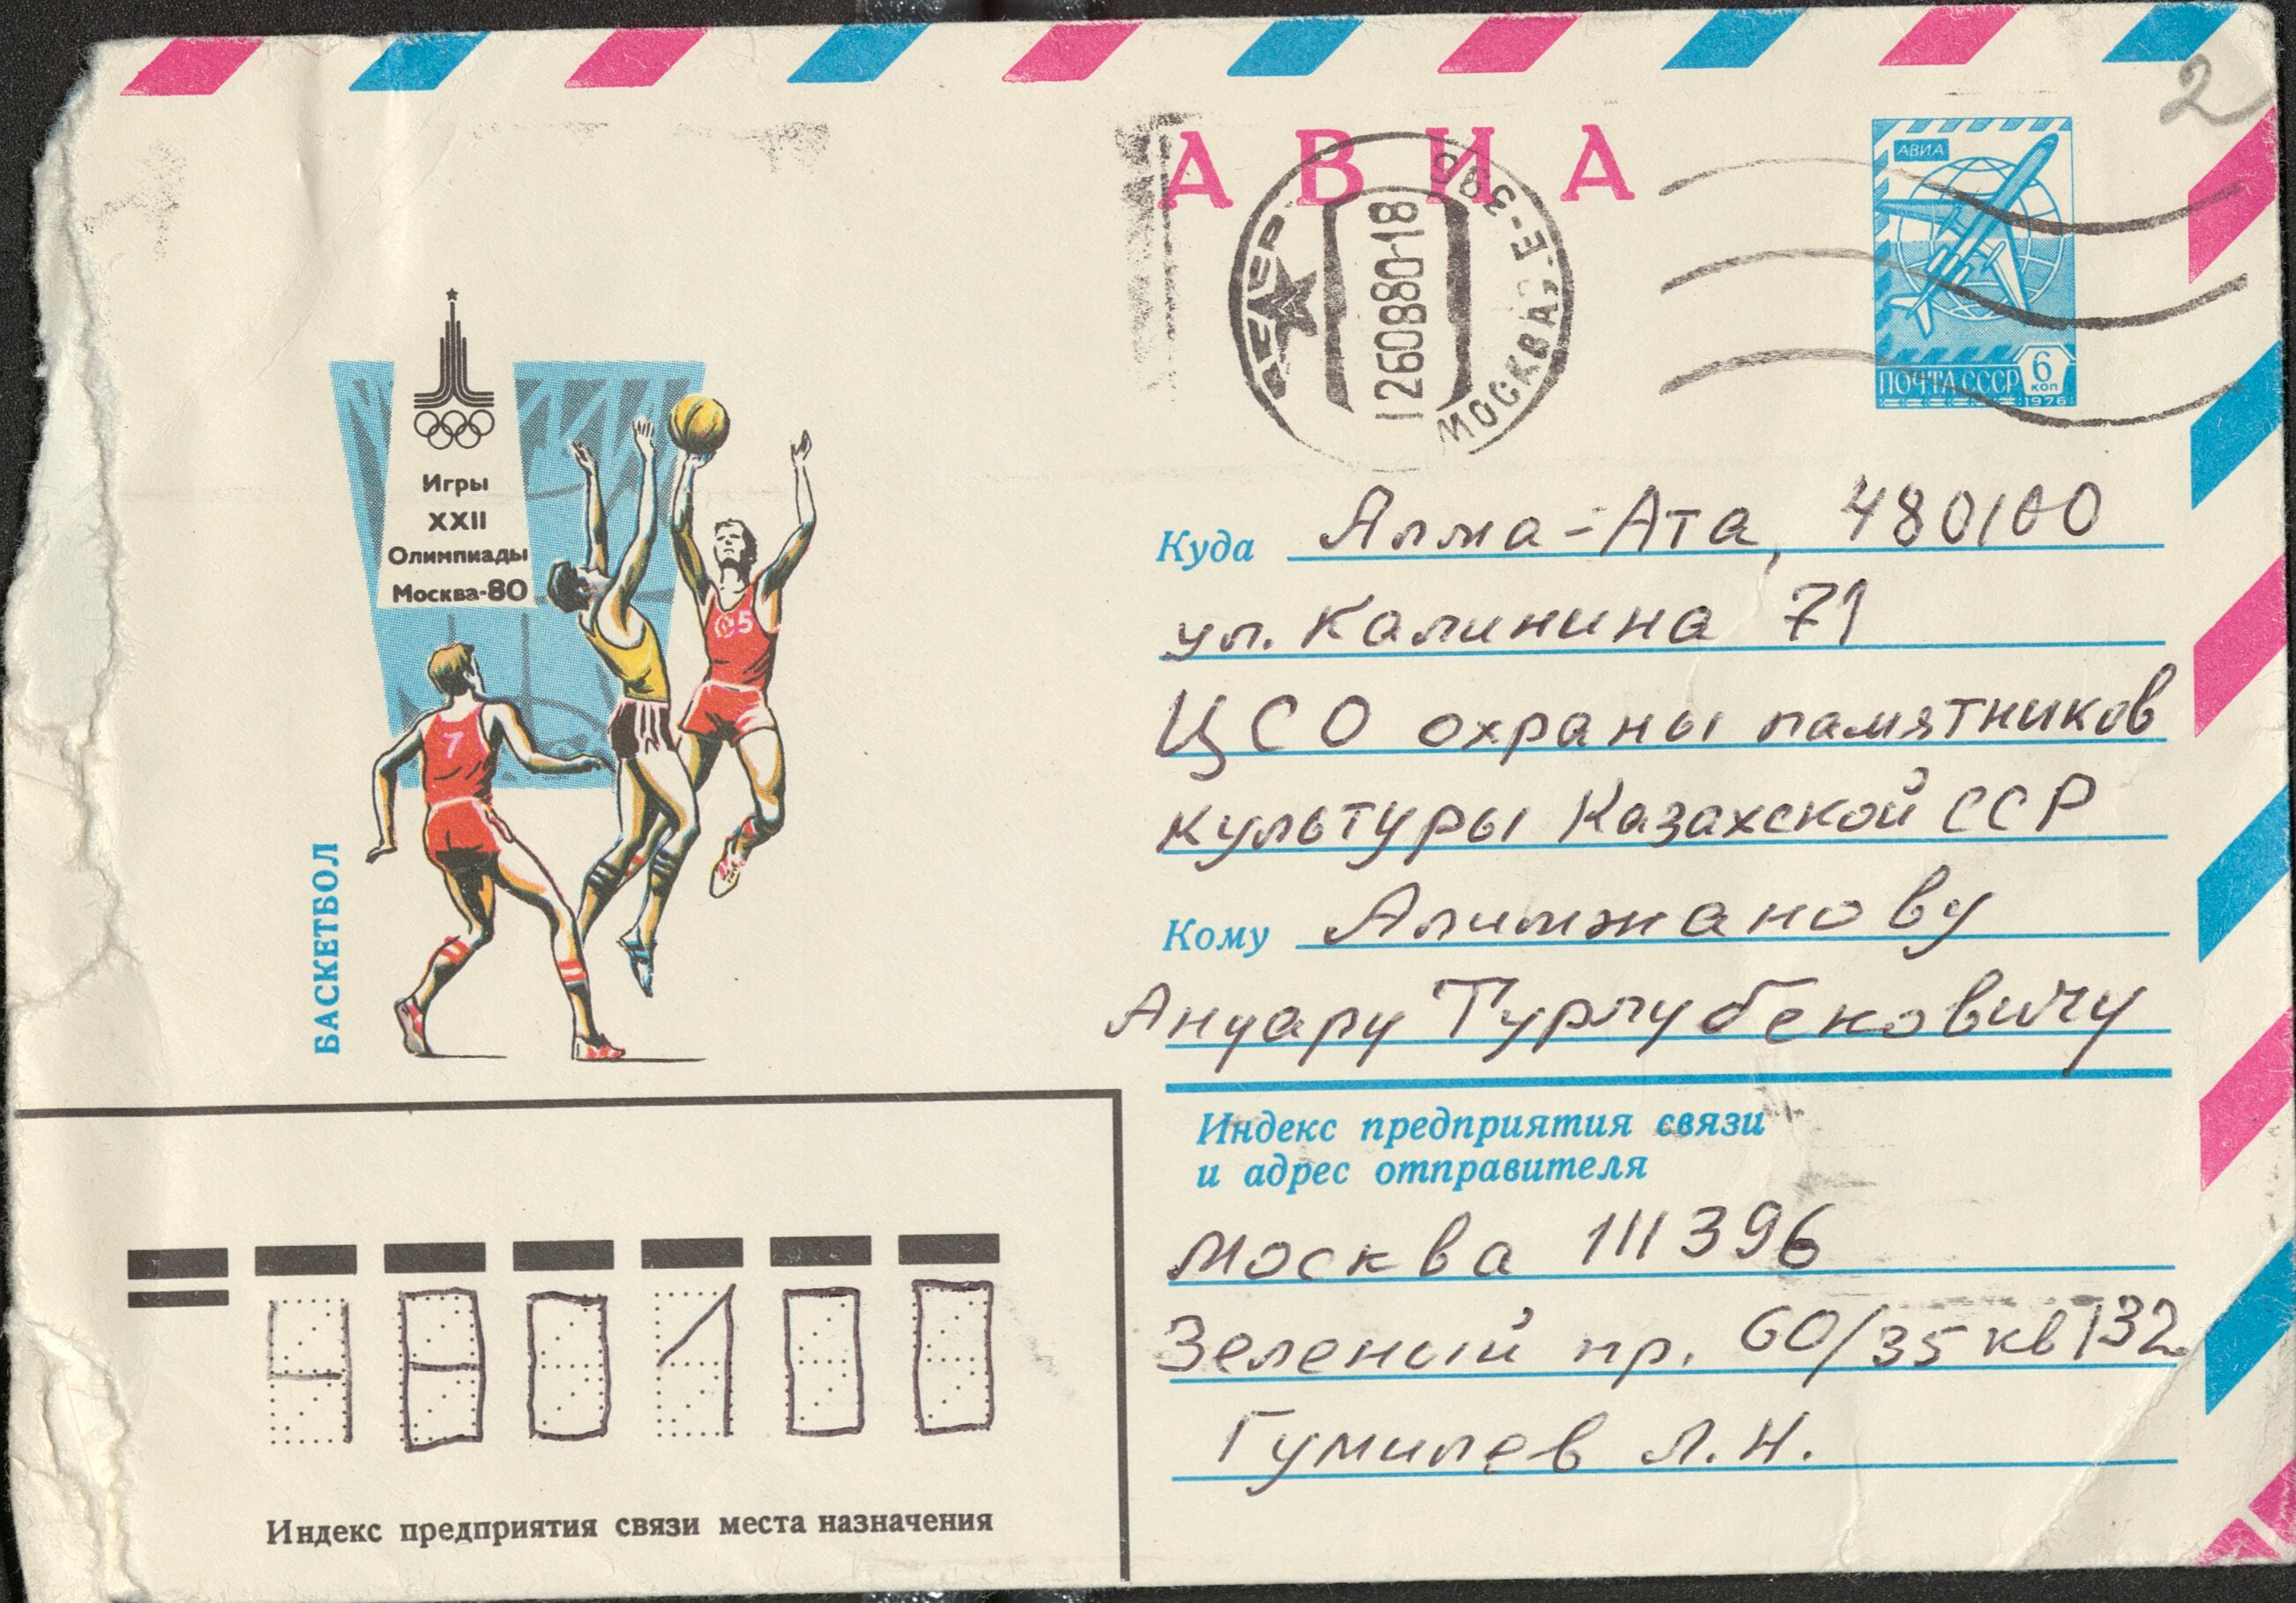 2
АВИА
АВИА
6
КОП
ПОЧТА СССР
1976
МОСКВА, Е-396
1260880-18
Игры
XXII
Олимпиады
Москва-80
5
7
БАСКЕТБОЛ
Куда Алма-Ата, 480100
ул. Калинина 71
ЦСО охраны памятников
культуры Казахской ССР
Кому Алимжанову
Ануару Турлубековичу
Индекс предприятия связи
и адрес отправителя
Москва 111396
Зеленый пр. 60/35 кв 132
Гумилев Л.Н.
480100
Индекс предприятия связи места назначения